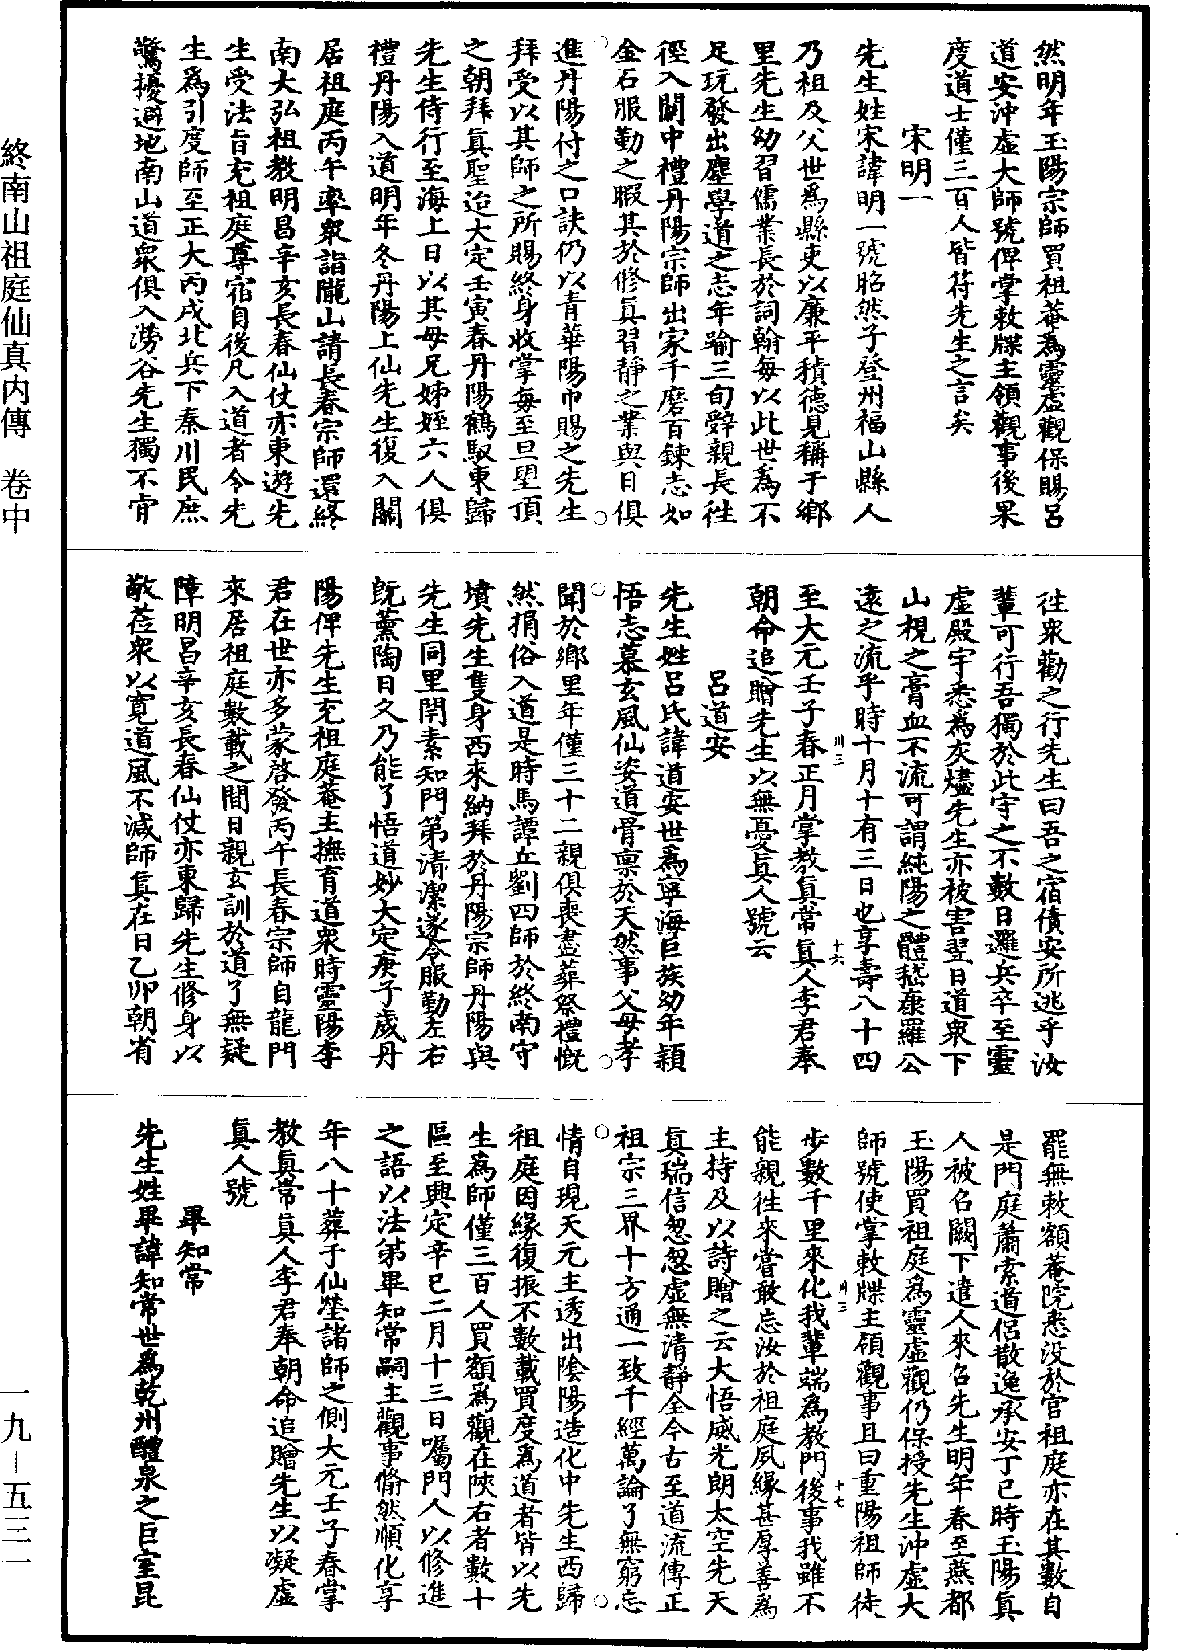 終南山祖庭仙真内傳　卷中
然明年玉陽宗師買祖菴為靈虛觀保賜呂
道安沖虛大師號俾掌敕牒主領觀事後果
度道士僅三百人皆符先生之言矣
宋明一
先生姓宋諱明一號昭然子登州福山縣人
乃祖及父世為縣吏以廉平積德見稱于鄉
里先生幼習儒業長於詞翰每以此世為不
足玩發出塵學道之志年踰三旬辭親長往
徑入關中禮丹陽宗師出家千磨百鍊志如
金石服勤之暇其於修真習靜之業與日俱
進丹陽付之口訣仍以青華陽巾賜之先生
拜受以其師之所賜終身收掌每至旦朢頂
之朝拜真聖迨大定壬寅春丹陽鶴馭東歸
先生侍行至海上日以其母兄姊姪六人俱
禮丹陽入道明年冬丹陽上仙先生復入關
居祖庭丙午率衆詣隴山請長春宗師還終
南大弘祖教明昌辛亥長春仙仗亦東遊先
生受法旨充祖庭尊宿自後凡入道者令先
生為引度師至正大丙戌北兵下秦川民庶
驚擾避地南山道衆俱入澇谷先生獨不肯
往衆勸之行先生曰吾之宿債安所逃乎汝
輩可行吾獨於此守之不數日邏兵卒至靈
虛殿宇悉為灰燼先生亦被害翌日道衆下
山視之膏血不流可謂純陽之體嵇康羅公
遠之流乎時十月十有三日也享壽八十四
至大元壬子春正月掌教真常真人李君奉
朝命追贈先生以無憂真人號云
呂道安
先生姓呂氏諱道安世為寧海巨族幼年穎
悟志慕玄風仙姿道骨禀於天然事父母孝
聞於鄉里年僅三十二親俱喪盡葬祭禮慨
然捐俗入道是時馬譚丘劉四師於終南守
墳先生隻身西來納拜於丹陽宗師丹陽與
先生同里閈素知門第清潔遂令服勤左右
既薰陶日久乃能了悟道妙大定庚子歲丹
陽俾先生充祖庭菴主撫育道衆時靈陽李
君在世亦多蒙啓發丙午長春宗師自龍門
來居祖庭數載之間日親玄訓於道了無疑
障明昌辛亥長春仙仗亦東歸先生修身以
敬莅衆以寬道風不減師真在日乙卯朝省
罷無敕額菴院悉没於官祖庭亦在其數自
是門庭蕭索道侶散逸承安丁巳時玉陽真
人被召闕下遣人來召先生明年春至燕都
玉陽買祖庭為靈虛觀仍保授先生沖虛大
師號使掌敕牒主領觀事且曰重陽祖師徒
步數千里來化我輩端為教門後事我雖不
能親往來嘗敢忘汝於祖庭夙緣甚厚善為
主持及以詩贈之云大悟威光朗太空先天
真瑞信怱怱虛無清靜全今古至道流傳正
祖宗三界十方通一致千經萬論了無窮忘
情自現天元主透出陰陽造化中先生西歸
祖庭因緣復振不數載買度為道者皆以先
生為師僅三百人買額為觀在陝右者數十
區至興定辛巳二月十三日囑門人以修進
之語以法弟畢知常嗣主觀事翛然順化享
年八十葬于仙塋諸師之側大元壬子春掌
教真常真人李君奉朝命追贈先生以凝虛
真人號
畢知常
先生姓畢諱知常世為乾州醴泉之巨室昆
卅三
十六
卅三
十七
一九－五三一